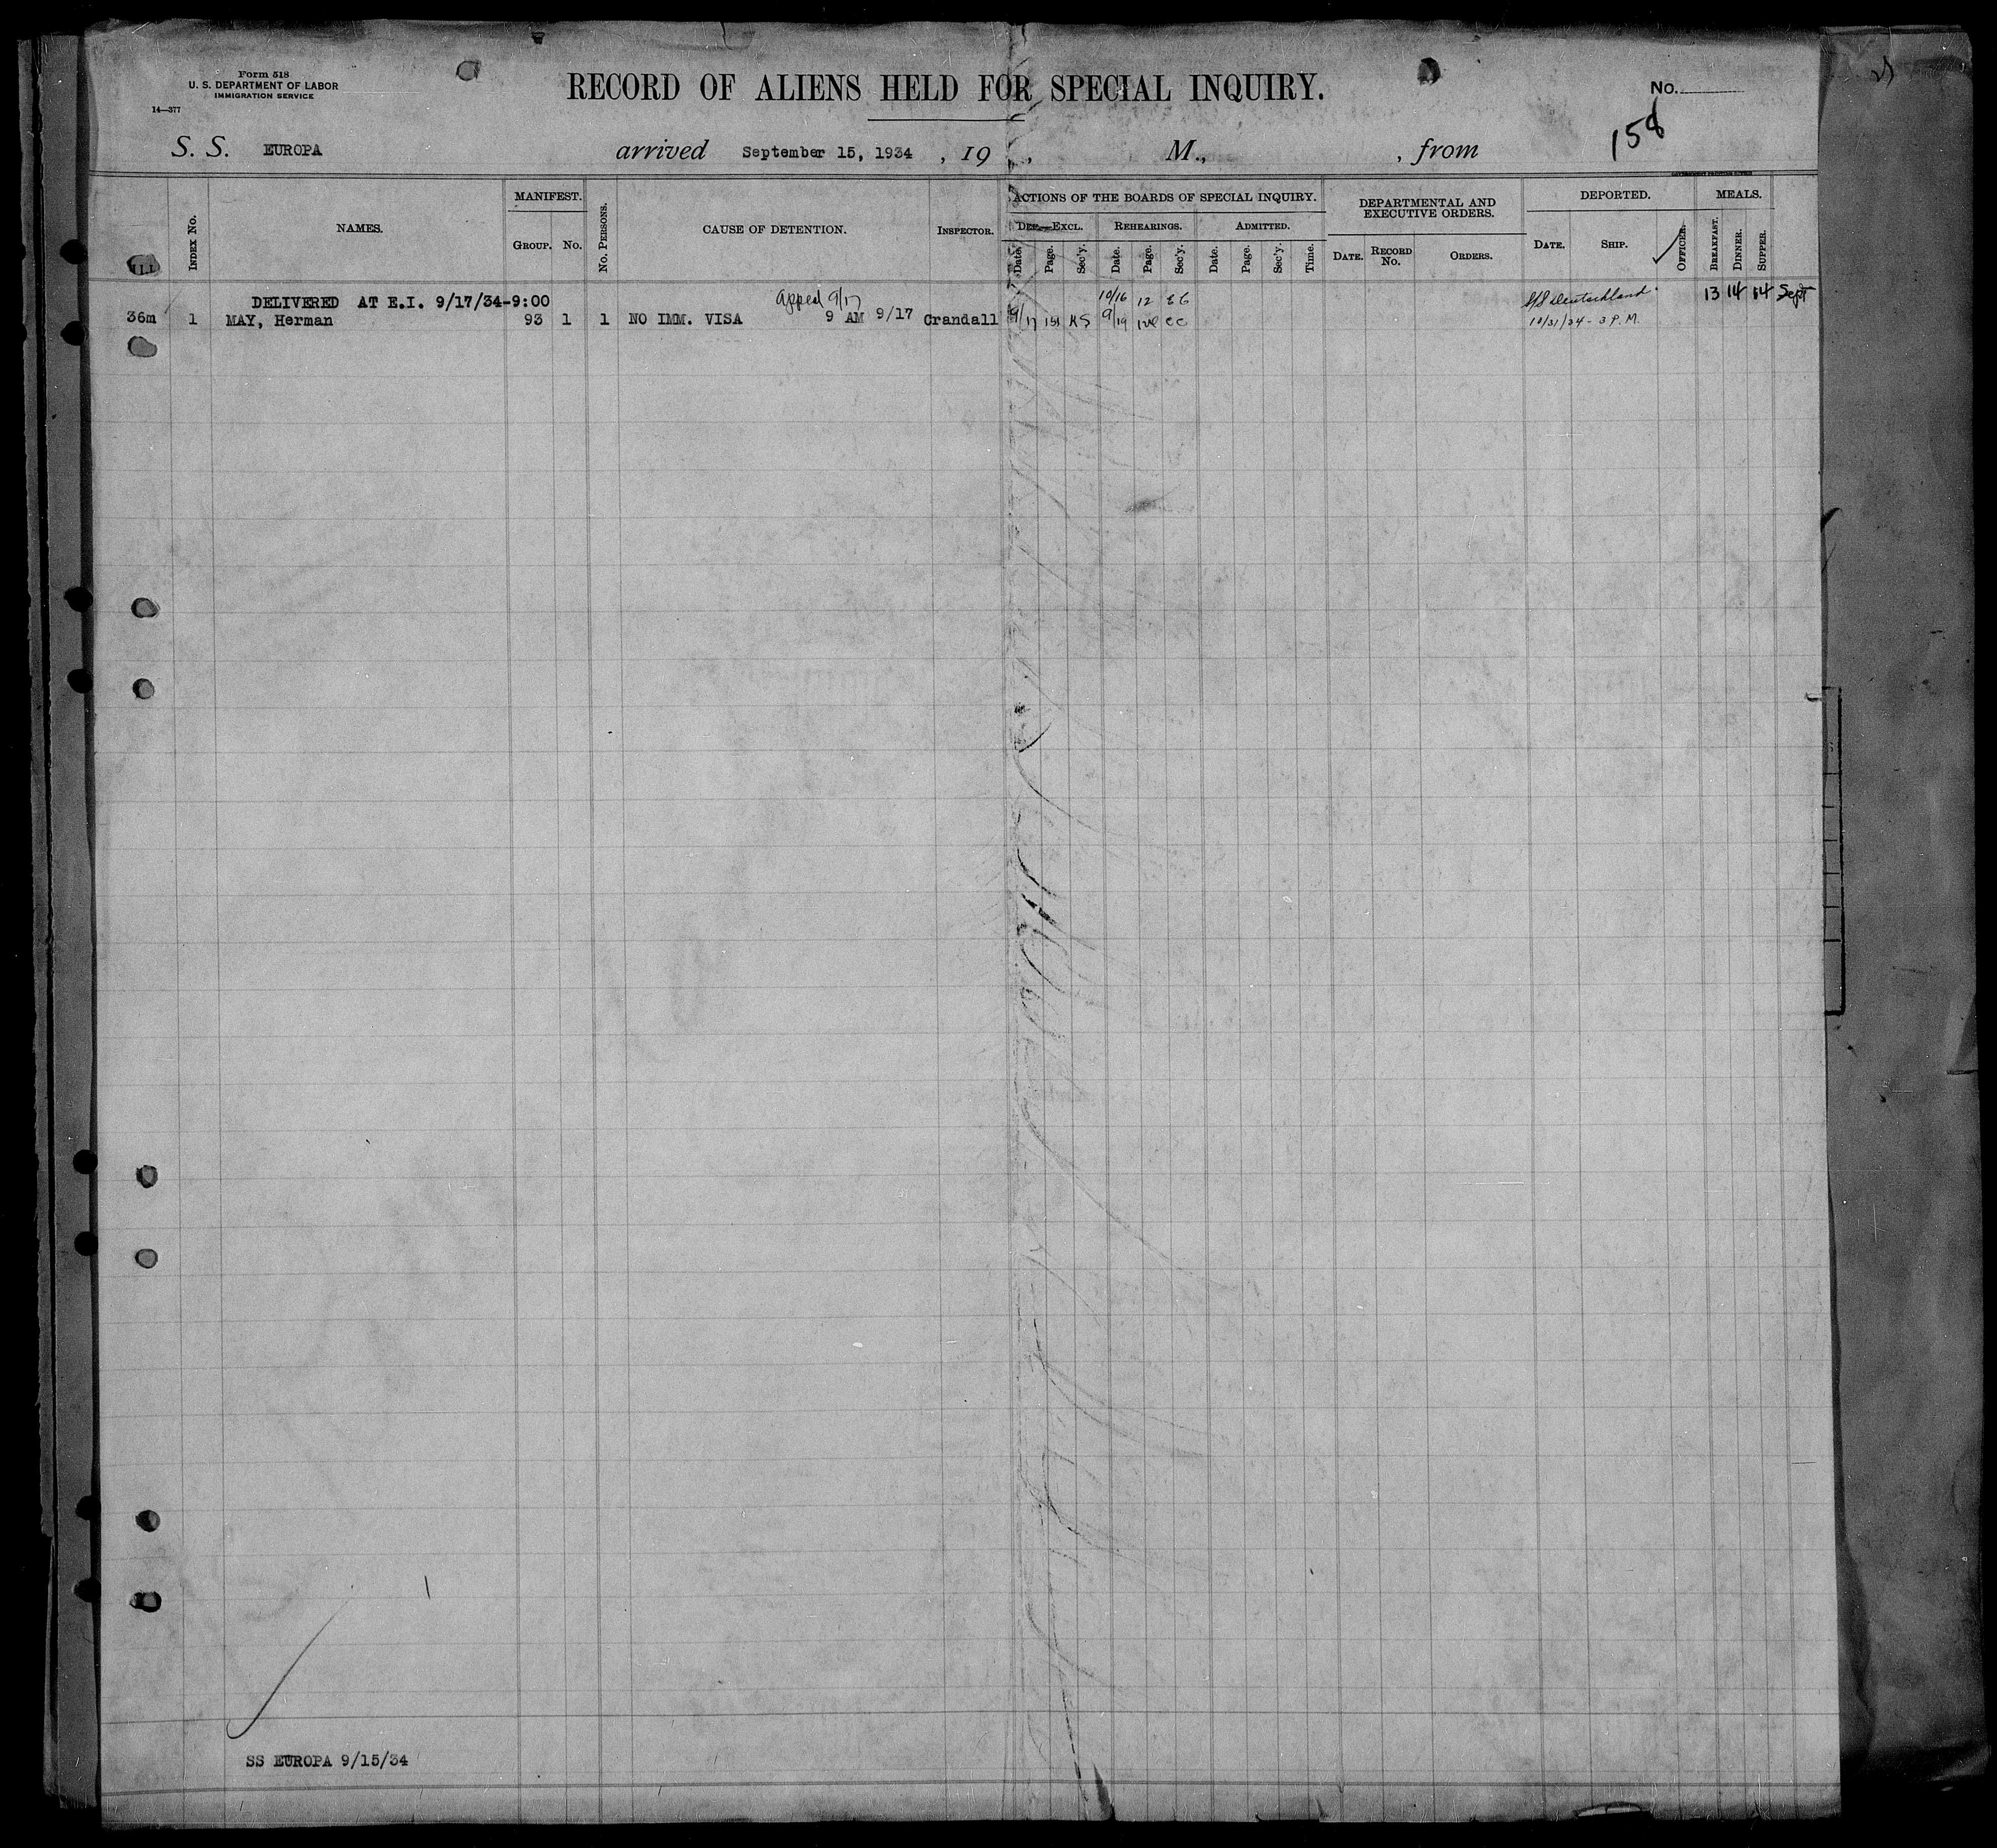 Form 518
U. S. DEPARTMENT OF LABOR
IMMIGRATION SERVICE
14—377
RECORD OF ALIENS HELD FOR SPECIAL INQUIRY.
No.
158
S. S. EUROPA arrived September 15, 1934 , 19 , M., , from
INDEX No.
NAMES.
MANIFEST.
GROUP. No.
No. PERSONS.
CAUSE OF DETENTION.
INSPECTOR.
ACTIONS OF THE BOARDS OF SPECIAL INQUIRY.
DEF.—EXCL. REHEARINGS. ADMITTED.
Date. Page. Sec'y. Date. Page. Sec'y. Date. Page. Sec'y. Time.
DEPARTMENTAL AND
EXECUTIVE ORDERS.
DATE. RECORD No. ORDERS.
DEPORTED.
DATE. SHIP. OFFICER.
MEALS.
BREAKFAST. DINNER. SUPPER.
DELIVERED AT E.I. 9/17/34-9:00 apped 9/17 10/16 12 EG S/S Deutschland 13 14 14 Sept
36m 1 MAY, Herman 93 1 1 NO IMM. VISA 9 AM 9/17 Crandall 9/17 151 KS 9/19 10/31/34 - 3 P.M.
SS EUROPA 9/15/34